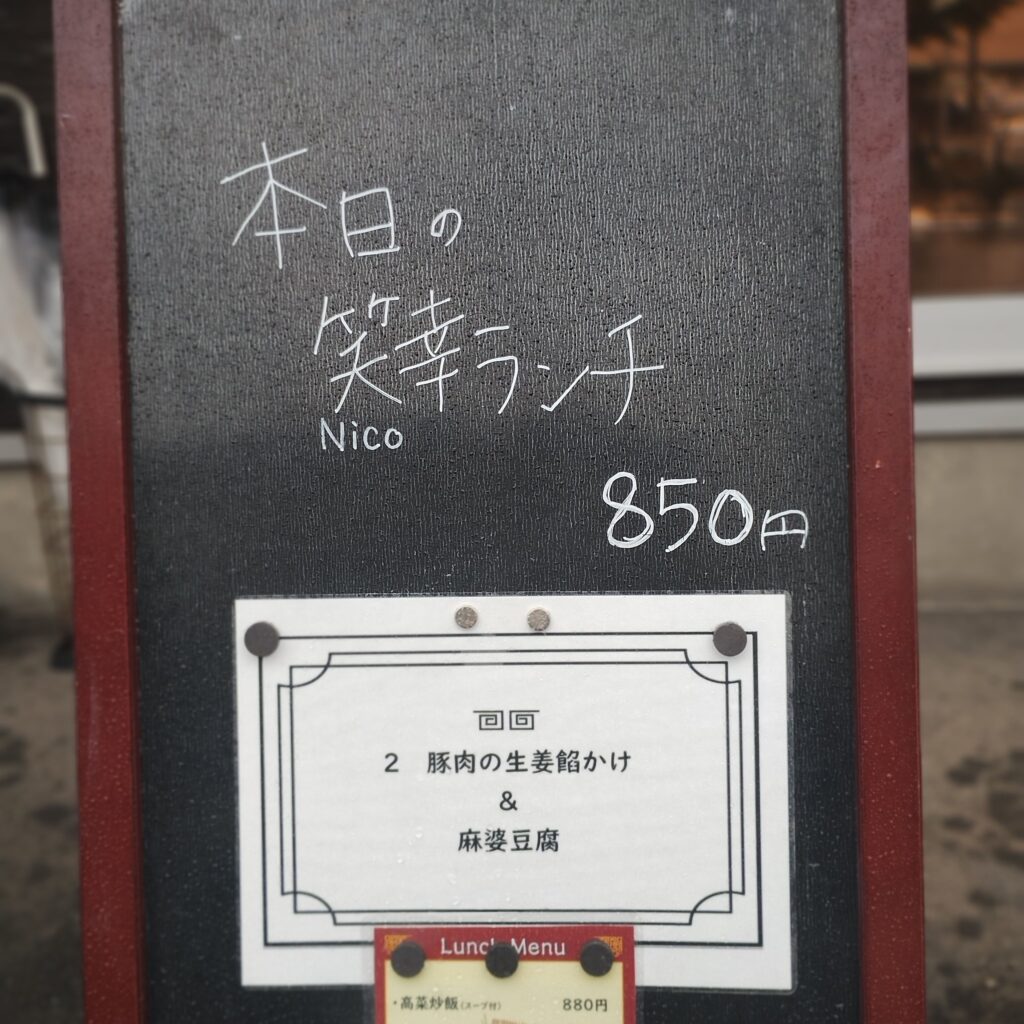 本日の
笑幸ランチ
Nico
850円
2 豚肉の生姜餡かけ
&
麻婆豆腐
Lunch Menu
・高菜炒飯(スープ付) 880円